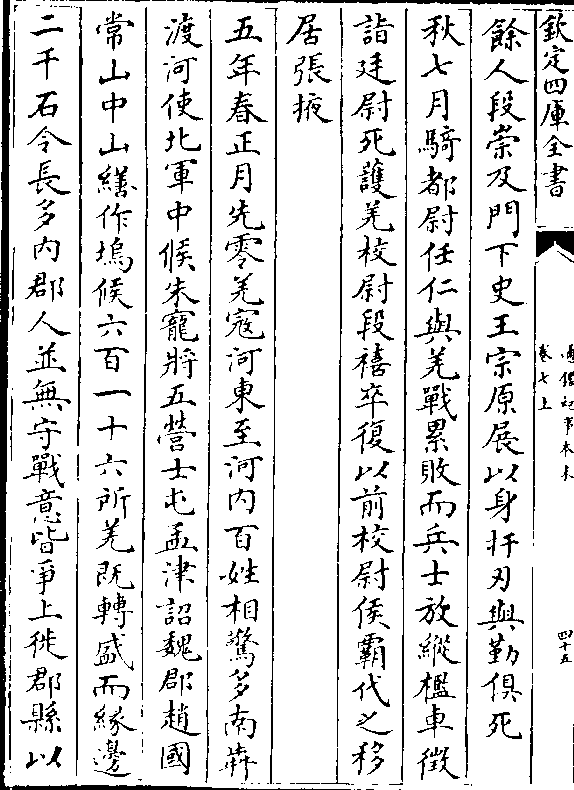 欽定四庫全書
通鑑紀事本末
卷七上
四十五
餘人段崇及門下史王宗原展以身扞刃與勤俱死
秋七月騎都尉任仁與羌戰累敗而兵士放縱檻車徵
詣廷尉死護羌校尉段禧卒復以前校尉侯霸代之移
居張掖
五年春正月先零羌寇河東至河内百姓相驚多南犇
渡河使北軍中候朱寵將五營士屯孟津詔魏郡趙國
常山中山繕作塢候六百一十六所羌既轉盛而緣邊
二千石令長多内郡人並無守戰意皆爭上徙郡縣以